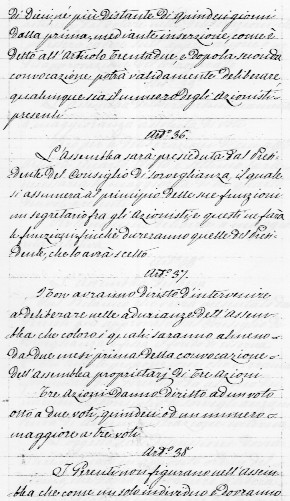 di dieci ne più distante di quindici giorni
dalla prima, mediante inserzione, come è
detto all'Articolo trentadue, e dopo la seconda
convocazione potrà validamente deliberare
qualunque sia il numero degli Azionisti
presenti
Art.º 36.
L'Assemblea sarà presieduta dal Presi-
dente del Consiglio di sorveglianza, il quale
si assumerà al principio delle sue funzioni
un segretario fra gli Azionisti, e questi ne farà
le funzioni finchè dureranno quelle del Presi-
dente, che lo avrà scelto
Art.º 37.
Non avranno diritto d'intervenire
a deliberare nelle adunanze dell'Assem-
blea, che coloro i quali saranno almeno
da due mesi prima della convocazione
dell'assemblea proprietarj di tre Azioni
Tre Azioni danno diritto ad un voto
otto a due voti, quindici od un numero
maggiore a tre voti
Art.º 38
I Gerenti non figurano nell'Assem-
blea che come un solo individuo e dovranno